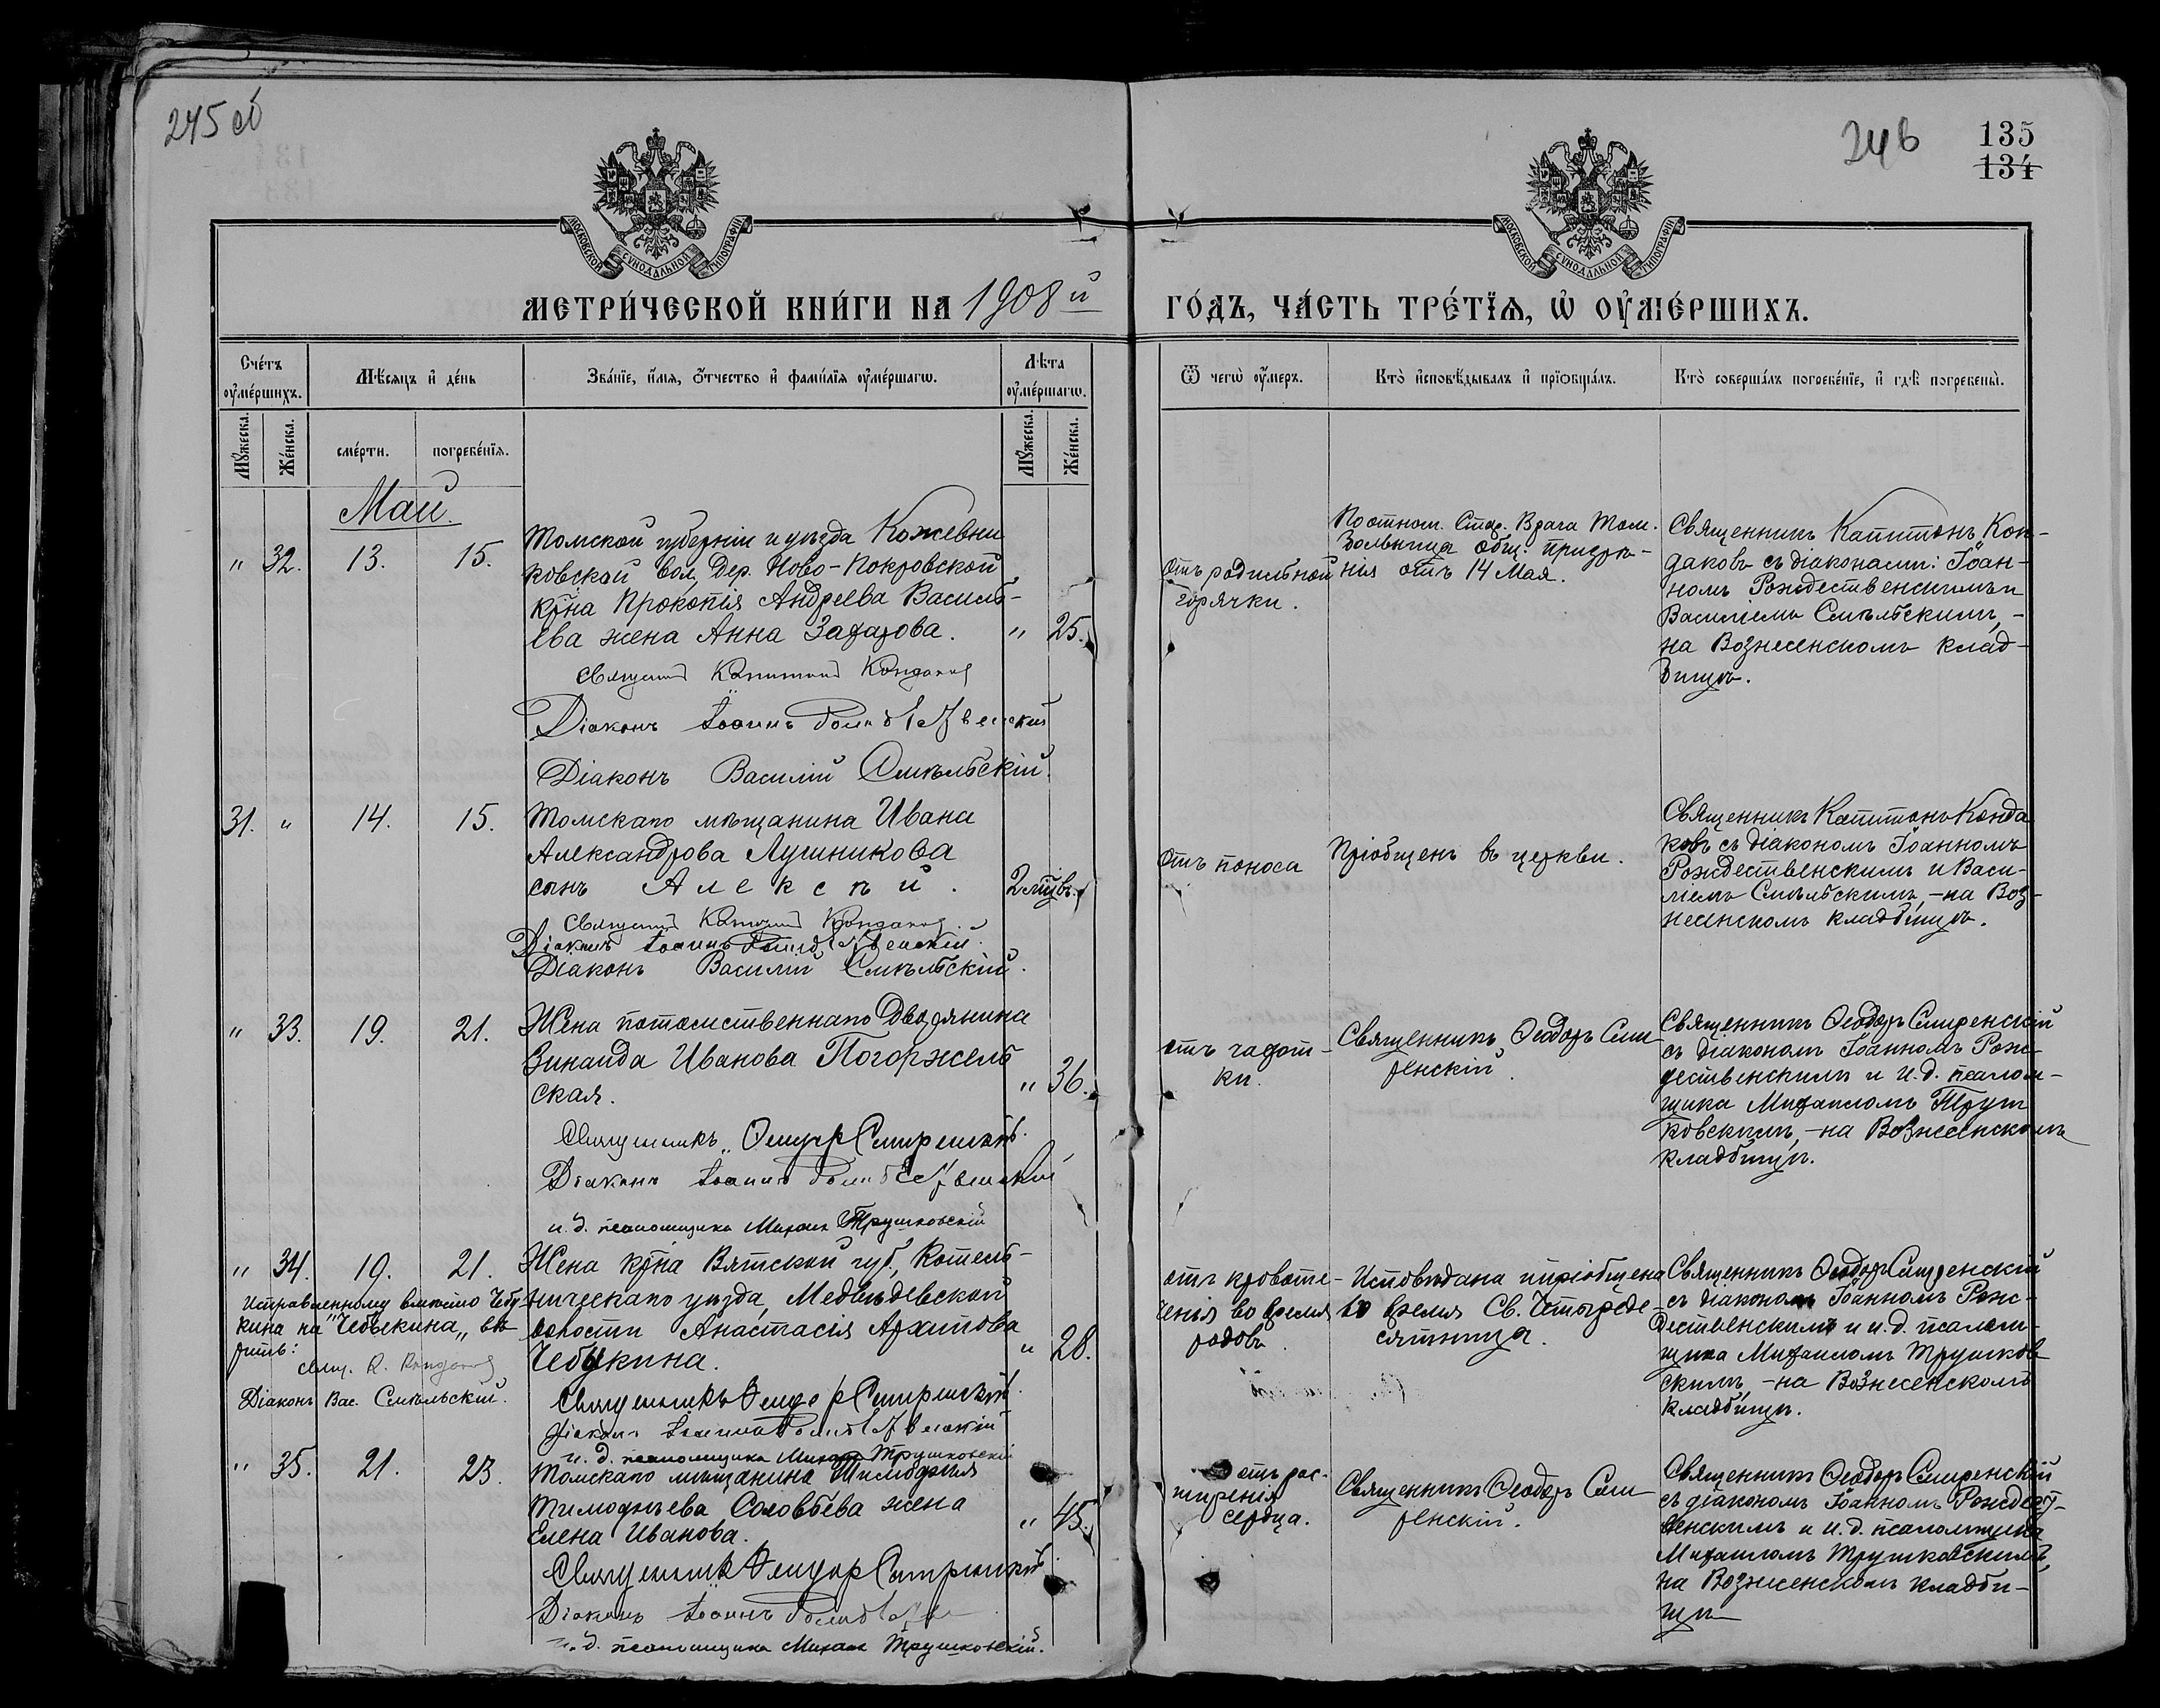 245 об
246
135
134
МОСКОВСКОЙ СѴНОДАЛЬНОЙ ТИПОГРАФІИ
МОСКОВСКОЙ СѴНОДАЛЬНОЙ ТИПОГРАФІИ
МЕТРИ́ЧЕСКОЙ КНИ́ГИ НА 1908 й
ГО́ДЪ, ЧА́СТЬ ТРЕ́ТЇѦ, Ѡ҆ ОУ҆МЕ́РШИХЪ.
Сче́тъ оу҆ме́ршихъ.
Мѣ́сѧцъ и҆ де́нь
Зва́нїе, и҆́мѧ, ѻ҆́тчество и҆ фами́лїѧ оу҆ме́ршагѡ.
Лѣ́та оу҆ме́ршагѡ.
Ѿ чегѡ̀ оу҆́меръ.
Кто̀ и҆сповѣ́дывалъ и҆ прїѡбща́лъ.
Кто̀ соверша́лъ погребе́нїе, и҆ гдѣ̀ погребены̀.
Мꙋ́жеска.
Же́нска.
сме́рти.
погребе́нїѧ.
Мꙋ́жеска.
Же́нска.
Май.
" 32. 13. 15.
Томской губерніи и уѣзда Кожевни
ковской вол, Дер. Ново-Покровской
кр̃на Прокопія Андреева Василь-
ева жена Анна Захарова. " 25.
Священник Капитон Кондаков
Діаконъ Іоаннъ Рождественскій
Діаконъ Василій Смѣльскій.
отъ родильной
горячки.
По отнош. Стар. Врача Том.
Больницы общ. призрѣ-
нія отъ 14 Мая.
Священникъ Капитонъ Кон-
даковъ съ діаконами: Іоан-
номъ Рождественскимъ и
Василіемъ Смѣльскимъ, -
на Вознесенскомъ клад-
бищѣ.
31. " 14. 15.
Томскаго мѣщанина Ивана
Александрова Лушникова
сынъ Алексѣй. 2 мѣсяцъ.
Священник Капитон Кондаков.
Діаконъ Іоаннъ Рождественскій.
Діаконъ Василій Смѣльскій.
отъ поноса
Пріобщенъ въ церкви.
Священникъ Капитонъ Конда
ковъ съ діакономъ Іоанномъ
Рождественскимъ и Васи-
ліемъ Смѣльскимъ, -на Воз-
несенскомъ кладбищѣ.
" 33. 19. 21.
Жена потомственнаго Дворянина
Зинаида Иванова Погоржель
ская. " 36.
Священникъ Ѳеодоръ Смиренскій.
Діаконъ Іоаннъ Рождественскій
и. д. псаломщика Михаил Трушковскій
отъ чахот-
ки.
Священникъ Ѳеодоръ Сми
ренскій.
Священникъ Ѳеодоръ Смиренскій
съ діакономъ Іоанномъ Рож-
дественскимъ и и. д. псалом-
щика Михаиломъ Труш
ковскимъ, -на Вознесенскомъ
кладбищѣ.
" 34. 19. 21.
Жена кр̃на Вятской губ., Котель-
ническаго уѣзда, Медвѣдевской
волости Анастасія Архипова
Чебукина. " 28.
Исправленному вмѣсто Чебу
кина на "Чебыкина,, вѣ
рить:
Свящ. К. Кондаков
Діаконъ Вас. Смѣльскій.
Священникъ Ѳеодоръ Смиренскій.
Діаконъ Іоаннъ Рождественскій
и. д. псаломщика Михаил Трушковскій
отъ кровоте-
ченія во время
родовъ.
Исповѣдана и пріобщена
во время Св. Четыреде-
сятницы.
Священникъ Ѳеодоръ Смиренскій
съ діакономъ Іоанномъ Рож-
дественскимъ и и. д. псалом-
щика Михаиломъ Трушков
скимъ, -на Вознесенскомъ
кладбищѣ.
" 35. 21. 23.
Томскаго мѣщанина Тимоѳея
Тимоѳеева Соловьева жена
Елена Иванова. " 45.
Священникъ Ѳеодоръ Смиренскій.
Діаконъ Іоаннъ Рождестве
и. д. псаломщика Михаил Трушковскій.
отъ рас-
ширенія
сердца.
Священникъ Ѳеодоръ Сми
ренскій.
Священникъ Ѳеодоръ Смиренскій
съ діакономъ Іоанномъ Рождест-
венскимъ и и. д. псаломщика
Михаиломъ Трушковскимъ,
на Вознесенскомъ кладби-
щѣ